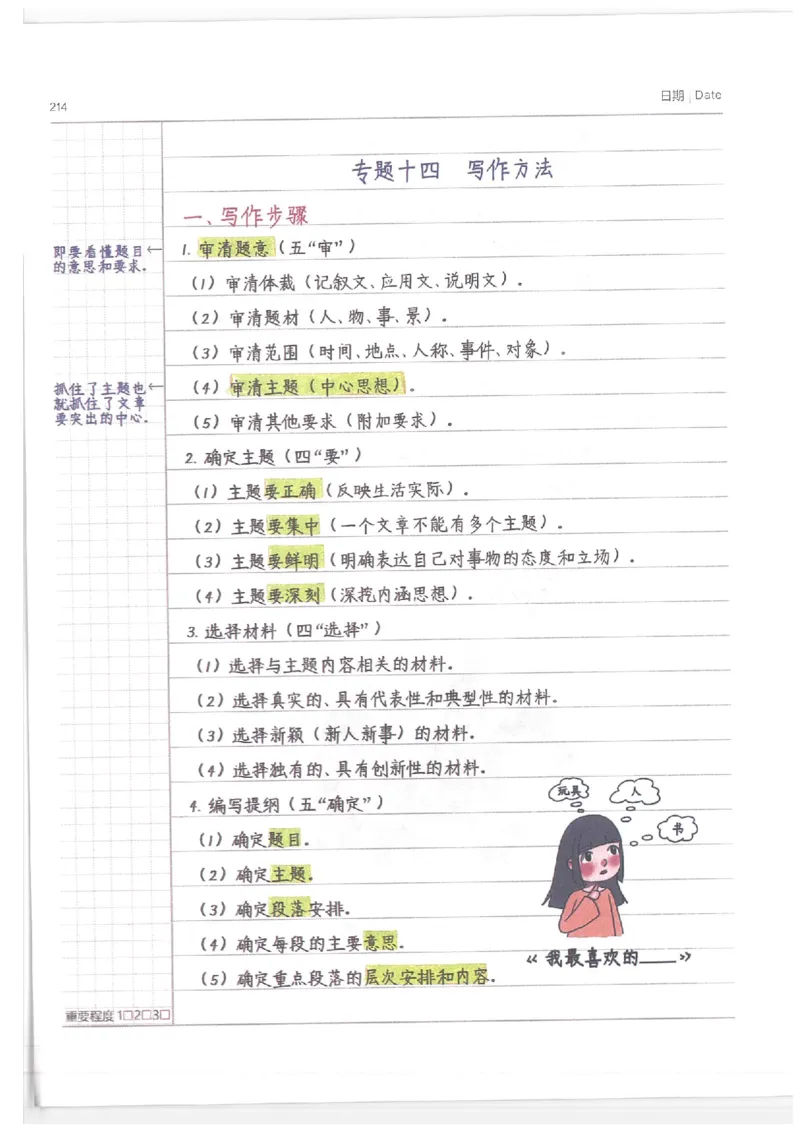 214
日期 | Date
专题十四 写作方法
一、写作步骤
即要看懂题目←
的意思和要求.
1. 审清题意(五“审”)
(1)审清体裁(记叙文、应用文、说明文).
(2)审清题材(人、物、事、景).
(3)审清范围(时间、地点、人称、事件、对象).
抓住了主题也←
就抓住了文章
要突出的中心.
(4)审清主题(中心思想).
(5)审清其他要求(附加要求).
2. 确定主题(四“要”)
(1)主题要正确(反映生活实际).
(2)主题要集中(一个文章不能有多个主题).
(3)主题要鲜明(明确表达自己对事物的态度和立场).
(4)主题要深刻(深挖内涵思想).
3. 选择材料(四“选择”)
(1)选择与主题内容相关的材料.
(2)选择真实的、具有代表性和典型性的材料.
(3)选择新颖(新人新事)的材料.
(4)选择独有的、具有创新性的材料.
4. 编写提纲(五“确定”)
(1)确定题目.
(2)确定主题.
(3)确定段落安排.
(4)确定每段的主要意思.
(5)确定重点段落的层次安排和内容.
玩具
人
书
《我最喜欢的____》
重要程度 1□2□3□